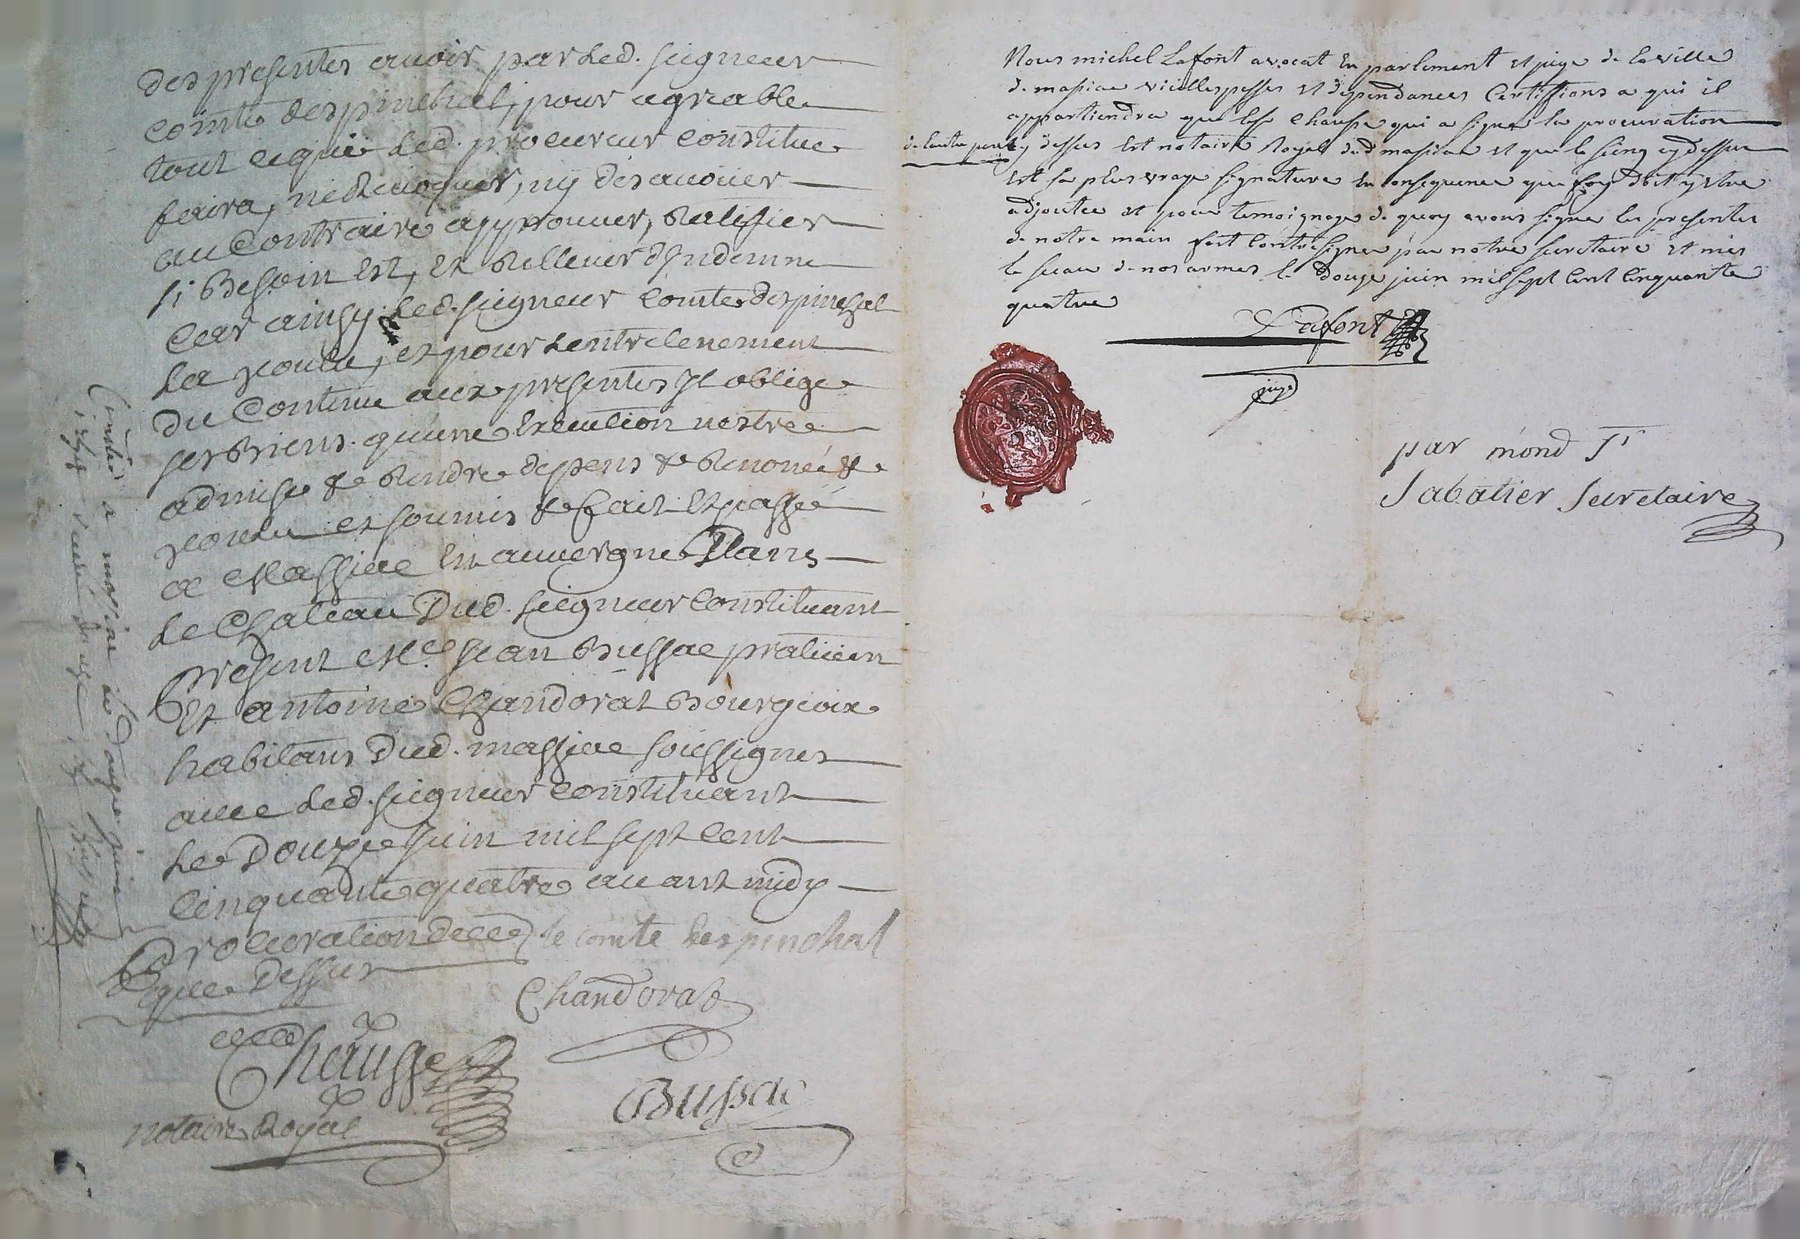 des presentes avoir par led. seigneur
comte despinchal, pour agreable
tout ce que led. procureur constitue
faira, ne revoquer, ny desavouer
au contraire approuver, ratifier
si besoin est, et relever d'indemne
car ainsy led. seigneur comte despinchal
la voulu, et pour lentretenement
du contenu aux presentes Il oblige
ses biens qu'une execution nostre
admise &e rendre depens &e renoncé &e
voulu et soumis &e fait et passé
a Massiac En auvergne Dans
Le Chateau Dud. seigneur Constituant
Present Me. Jean Bussac praticien
Et antoine Chandorat Bourgeoix
habitans Dud. massiac soussignes
avec Led. seigneur Constituant
Le Douze Juin mil sept cent
Cinquante quatre avant midy
Procuration
que Dessus
le comte despinchal
Chandorat
Chausse
Bussac
notaire Royal
Controllé a massiac le douze juin
1754 Bussac
Nous michel Lafont avocat En parlement et juge de la ville
de massiac vieillespesses et dependances Certiffions a qui il
appartiendra que Me Chausse qui a signe la procuration
de lautre part cy dessus Est notaire Royal dud massiac et que le seing cy dessus
Est sa plus vraye signature En Consequence que foy doit y Etre
adjoutee et pour temoignage de quoy avons signe les presentes
de notre main fait Contresigner par notre secretaire et mis
le sceau de nos armes le Douze juin mil sept Cent Cinquante
quatre
Lafont
juge
par mond Sr
Sabatier Secretaire